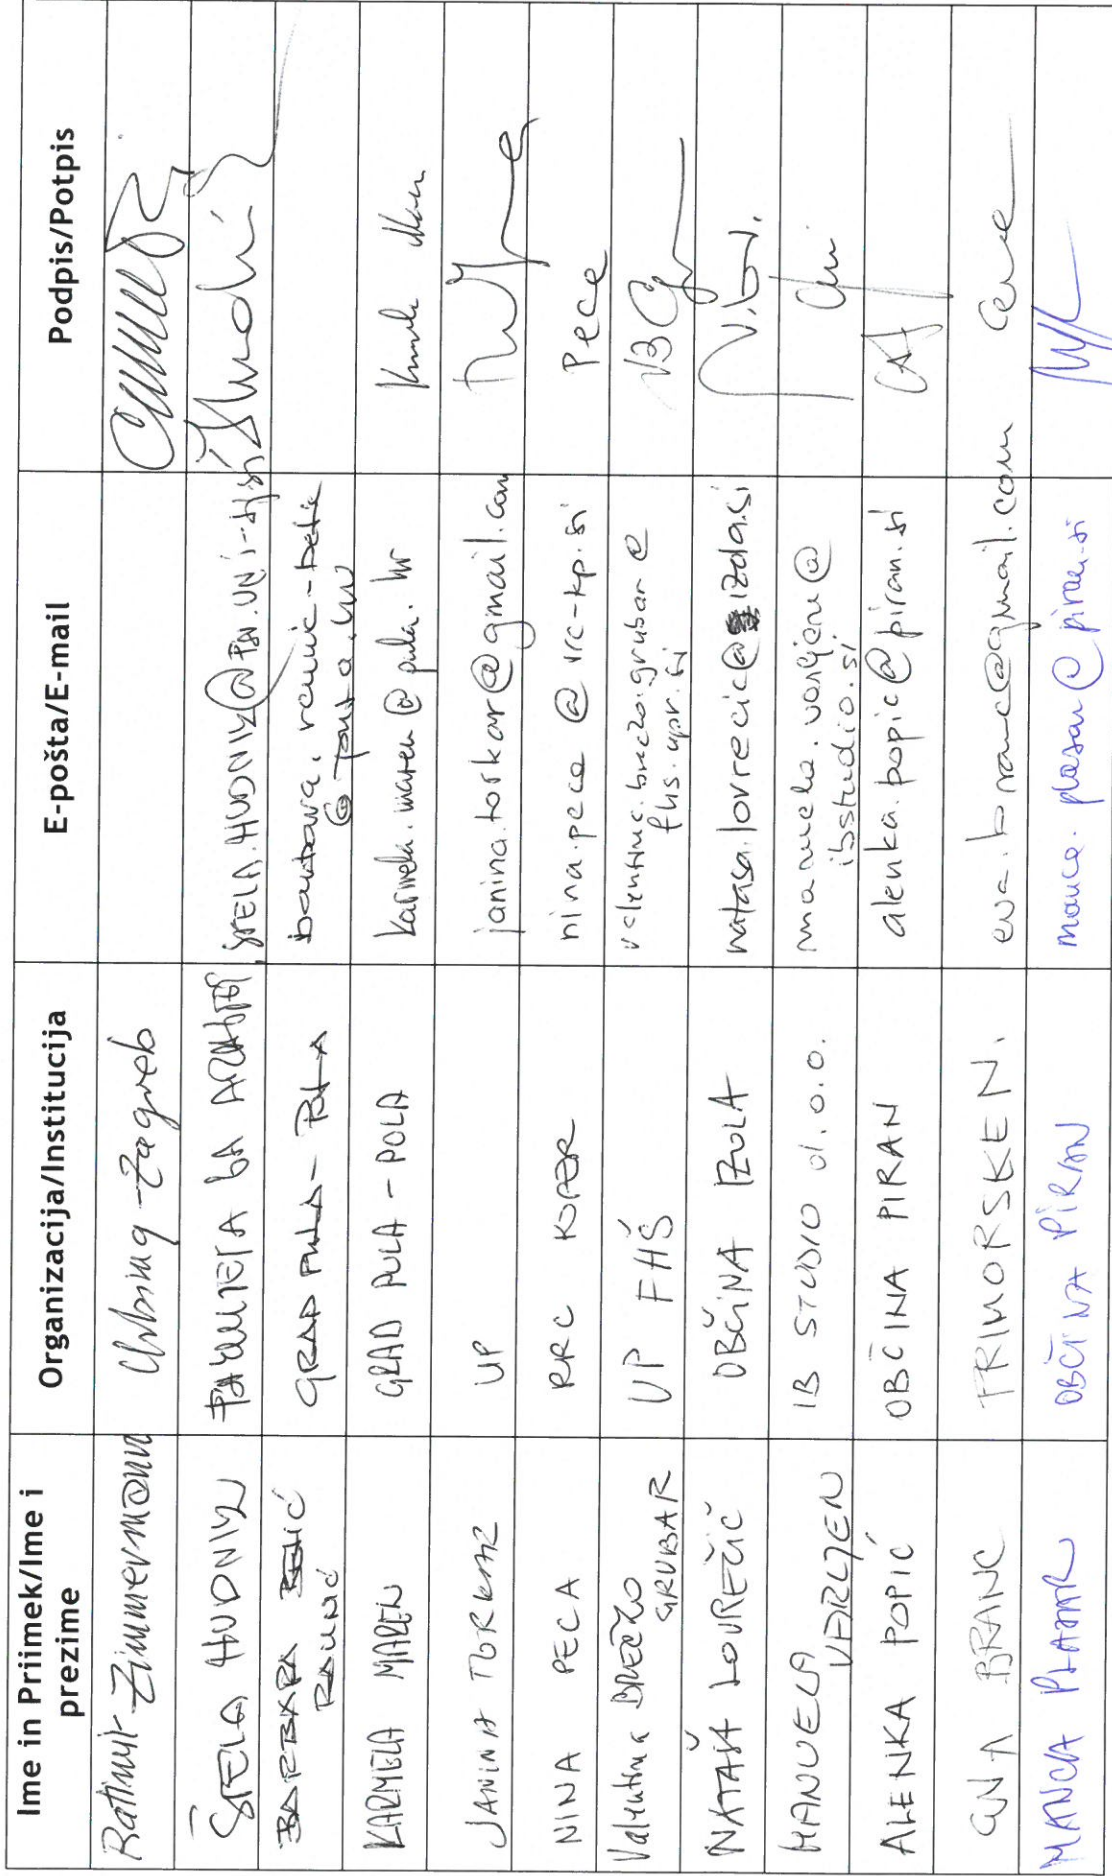 Ime in Priimek/Ime i prezime Organizacija/Institucija E-pošta/E-mail Podpis/Potpis
Ratimir Zimmermann Urbing Zagreb
ŠTELA HUDNIK LA ŠTELA.HUDNIK@
BARBARA RAUNIĆ GRAD PULA-POLA
KARMELA MAREN GRAD PULA-POLA karmela.maren@pula.hr
JANINA TORKAR UP janina.torkar@gmail.com
NINA PECA RRC KOPER nina.peca@rrc-kp.si Peca
Valentina BREČKO GRUBAR UP FHŠ valentina.brecko.grubar@fhs.upr.si
NATAŠA LOVREČIČ OBČINA IZOLA natasa.lovrecic@izola.si
MANUELA VERLJEN IB STUDIO d.o.o. manuela.verljen@ibstudio.si
ALENKA POPIĆ OBČINA PIRAN alenka.popic@piran.si
EVA BRANC PRIMORSKE N. eva.branc@gmail.com
MANCA PLAZAR OBČINA PIRAN manca.plazar@piran.si